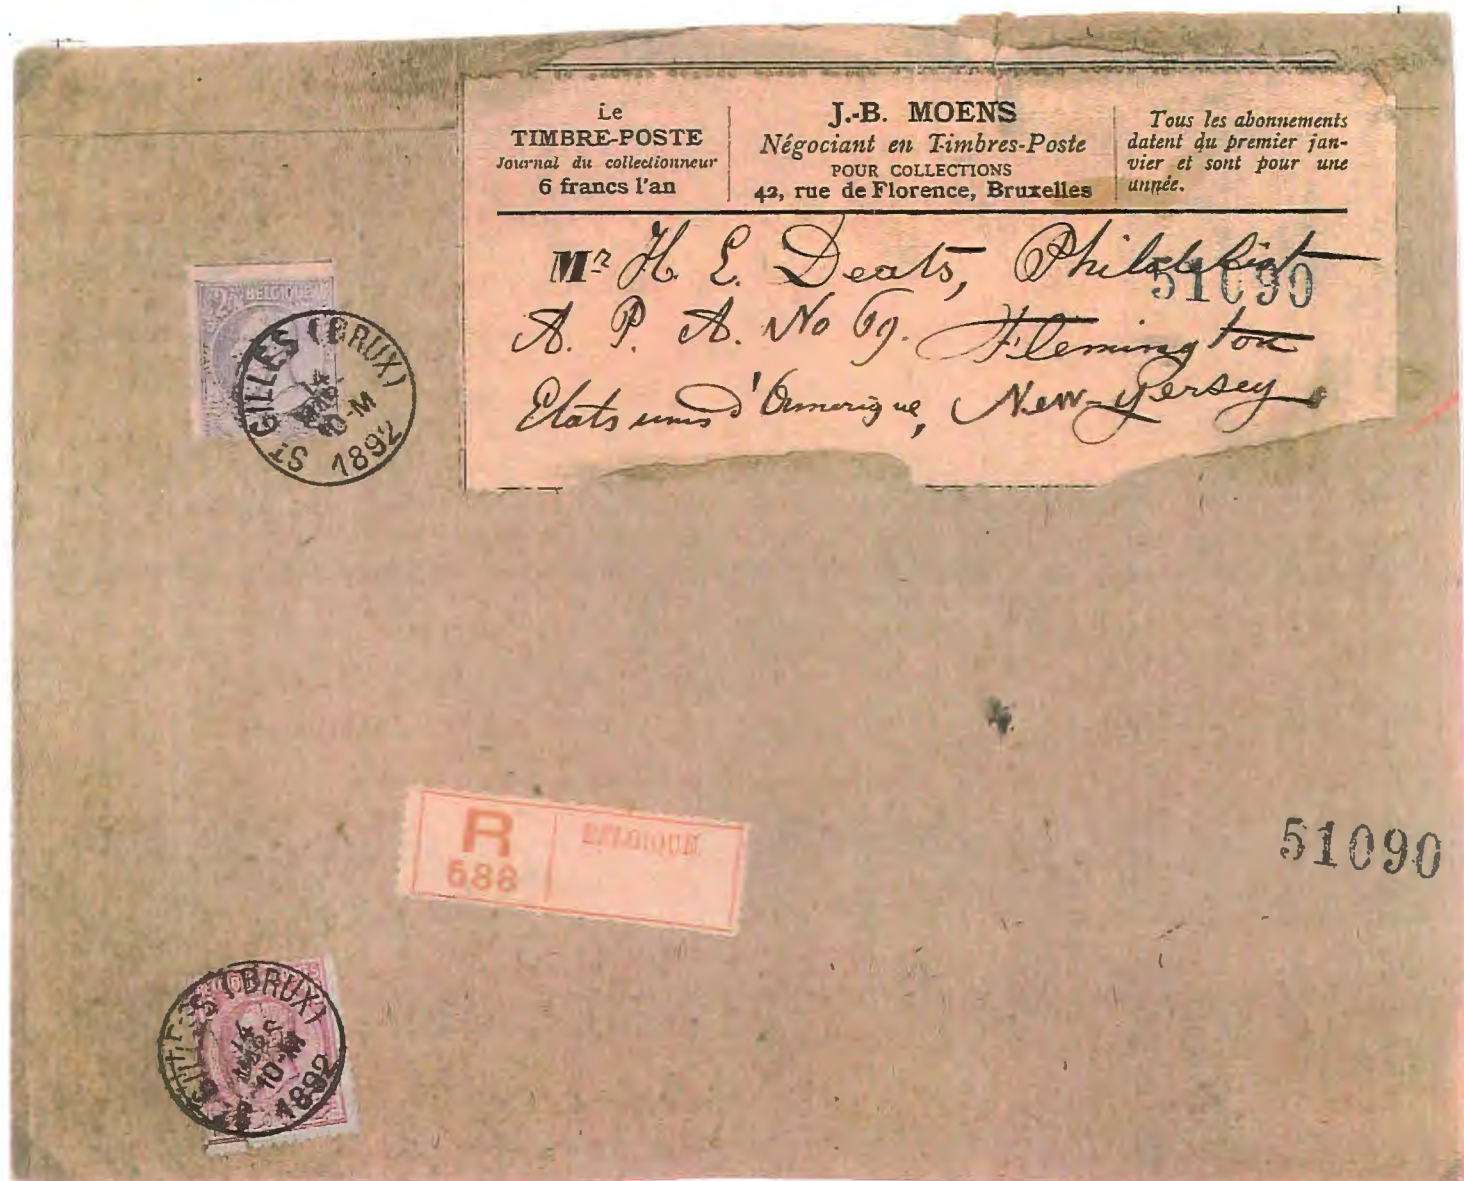 Le
TIMBRE-POSTE
Journal du collectionneur
6 francs l'an
J.-B. MOENS
Négociant en Timbres-Poste
POUR COLLECTIONS
42, rue de Florence, Bruxelles
Tous les abonnements
datent du premier jan-
vier et sont pour une
année.
Mr H. E. Deats, Philatelist
51090
A. P. A. No 69. Flemington
Etats unis d'Amérique, New-Jersey
BELGIQUE
ST GILLES (BRUX)
14
MARS
10-M
1892
R
688
BELGIQUE.
51090
ST GILLES (BRUX)
14
MARS
10-M
1892